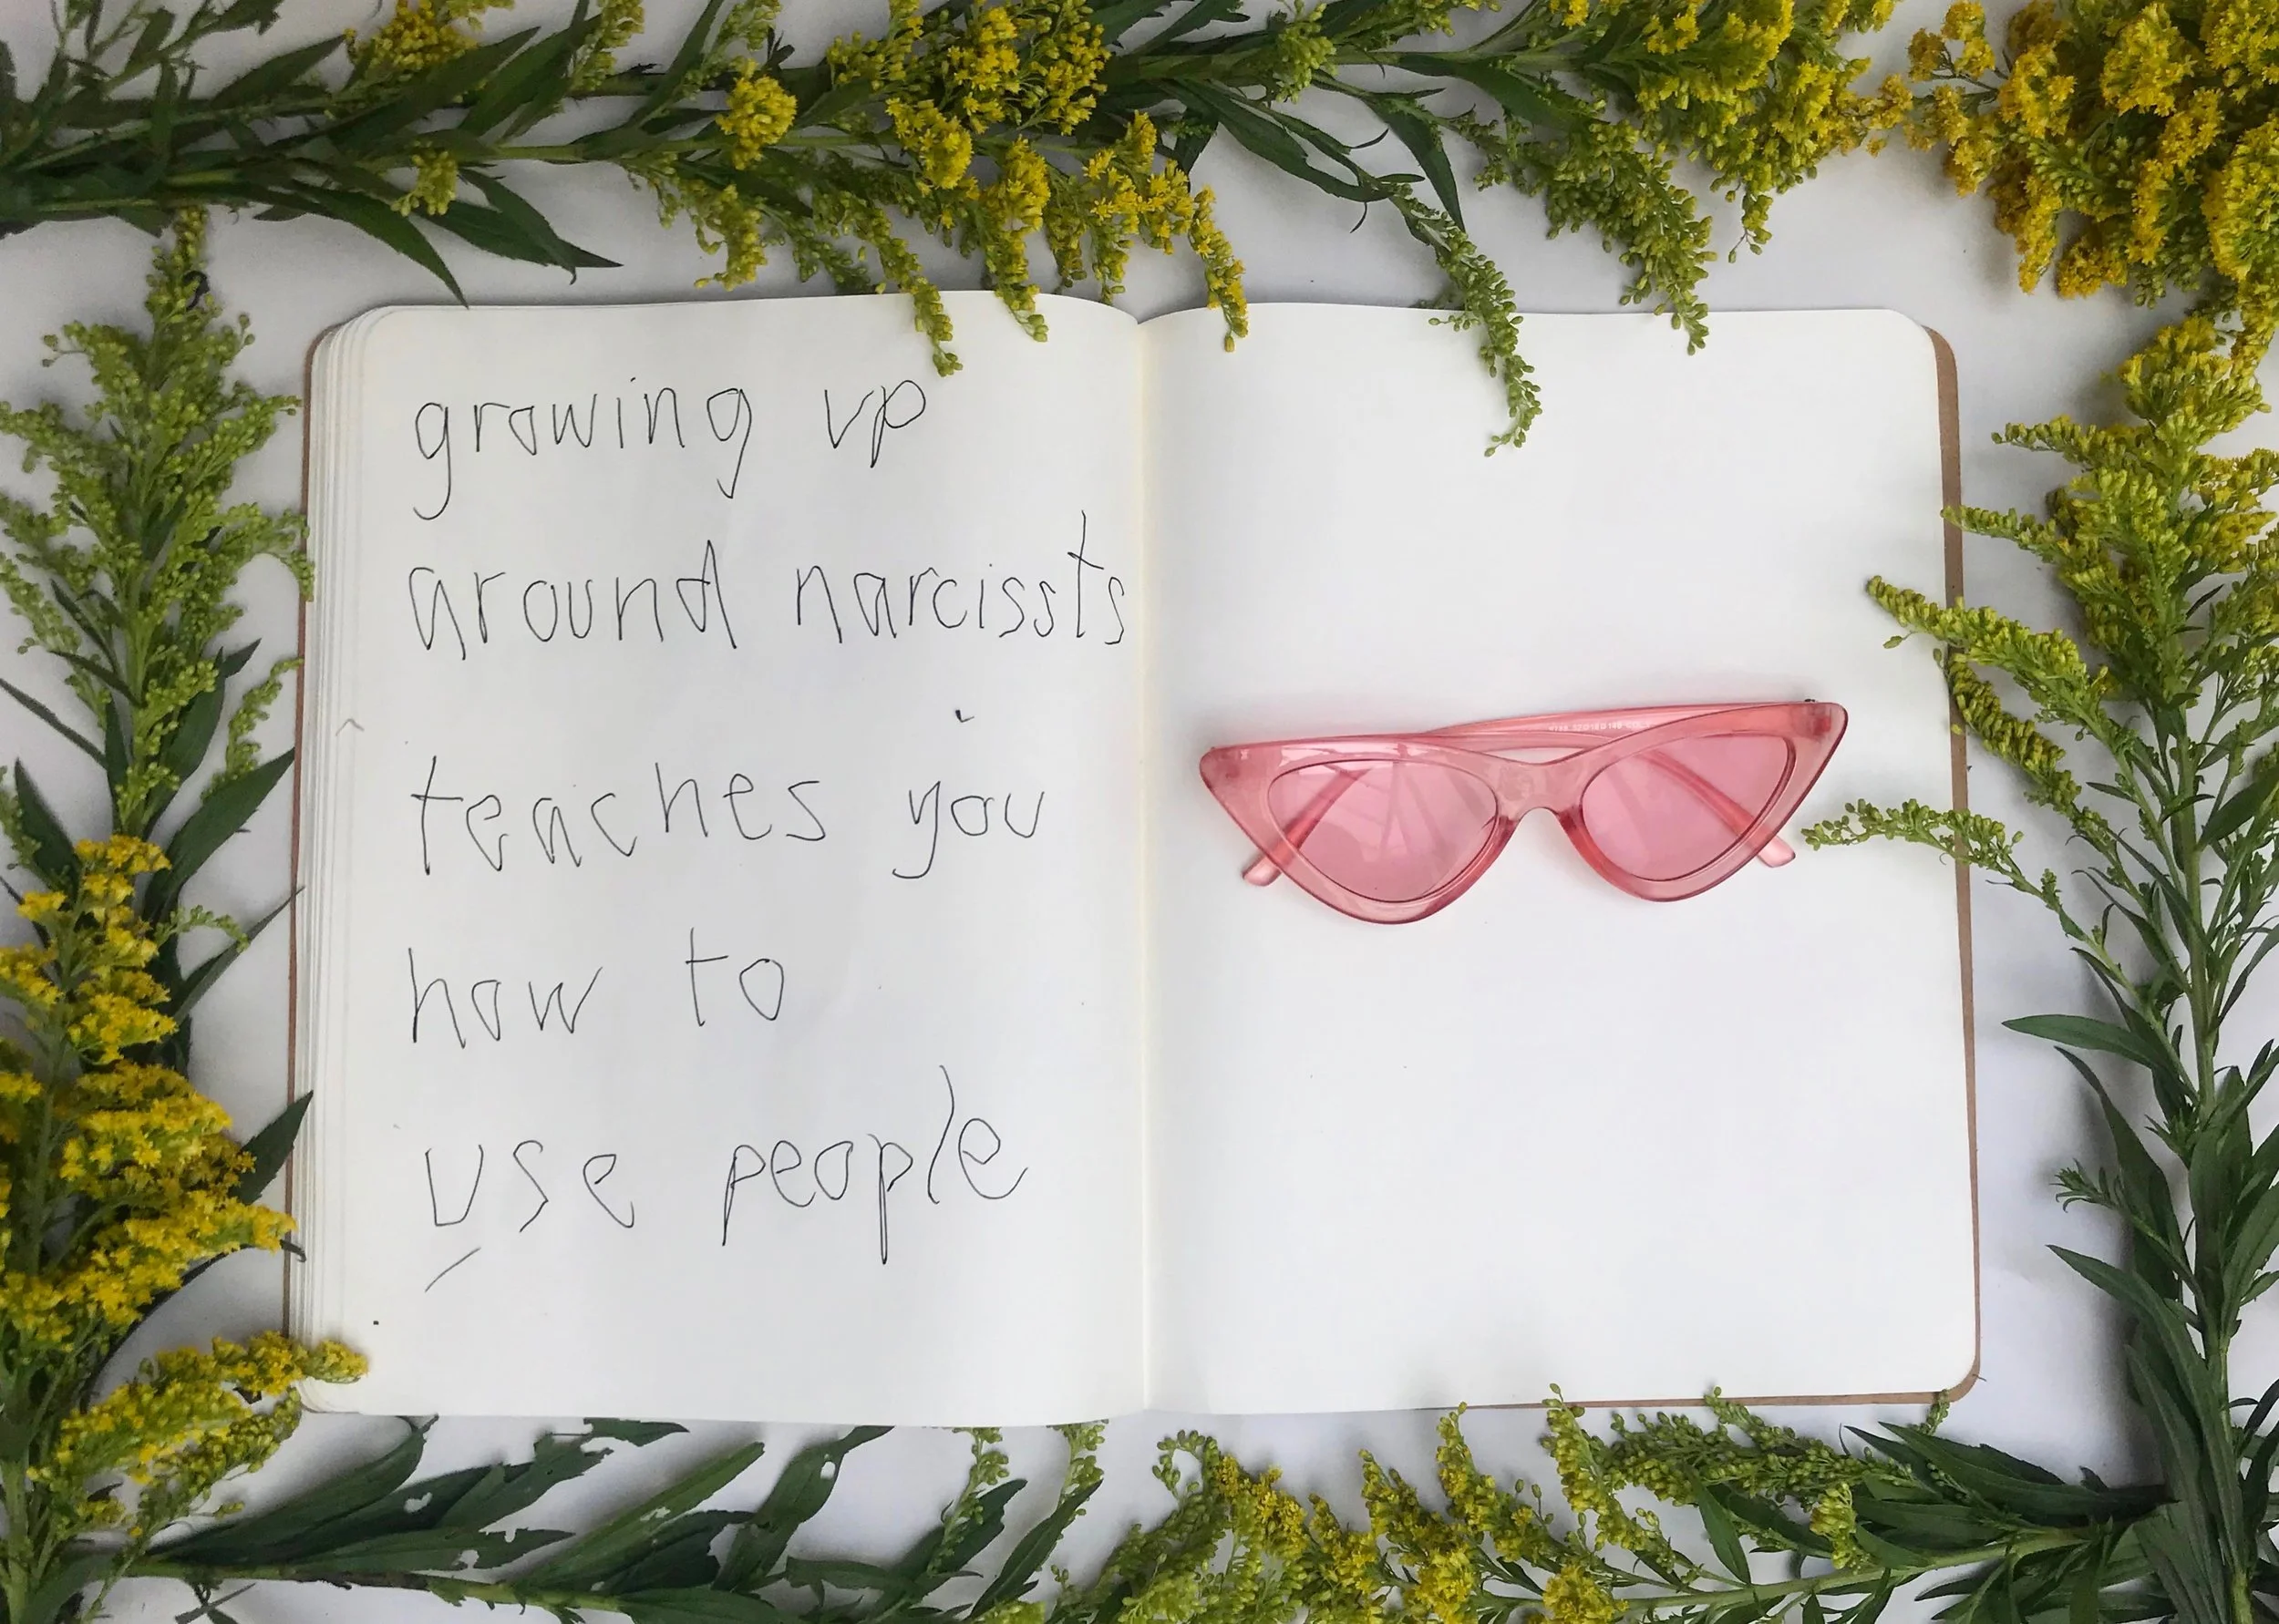 growing up
around narcissts
teaches you
how to
use people